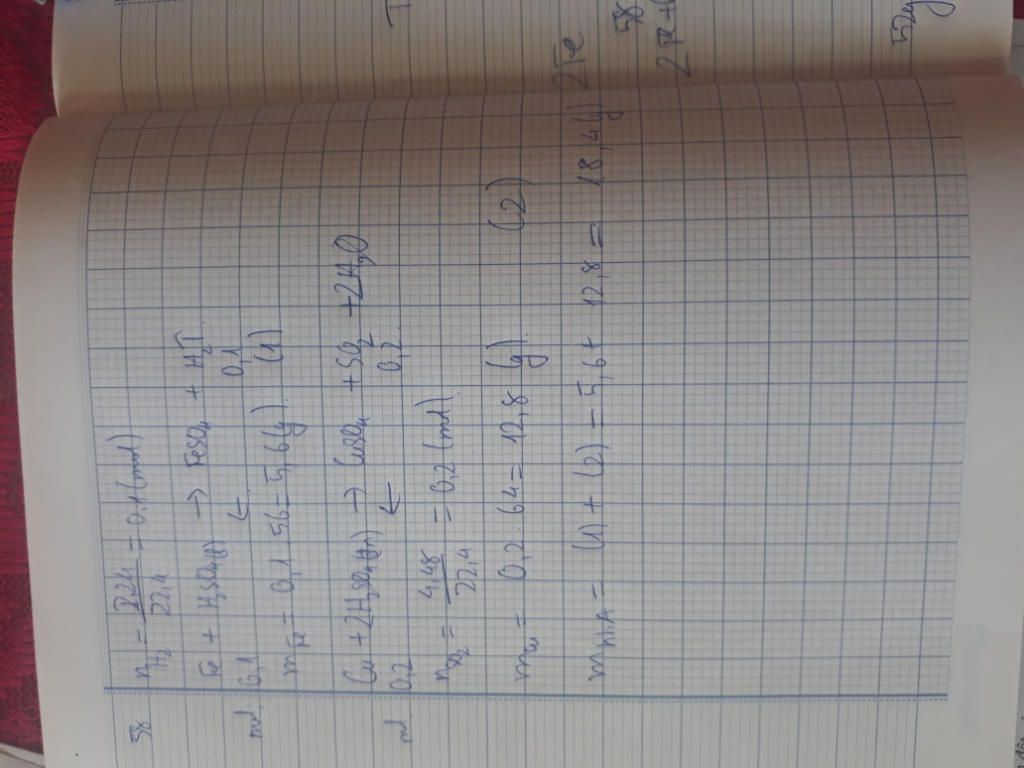 58
n H₂ = 2,24 / 22,4 = 0,1 (mol)
Fe + H₂SO₄(l) → FeSO₄ + H₂↑
mol 0,1 ← 0,1
m Fe = 0,1 . 56 = 5,6 (g) (1)
Cu + 2H₂SO₄(đn) → CuSO₄ + SO₂ + 2H₂O
mol 0,2 ← 0,2
n SO₂ = 4,48 / 22,4 = 0,2 (mol)
m Cu = 0,2 . 64 = 12,8 (g) (2)
m hh A = (1) + (2) = 5,6 + 12,8 = 18,4 (g)
T
2Fe
58
2Fe +